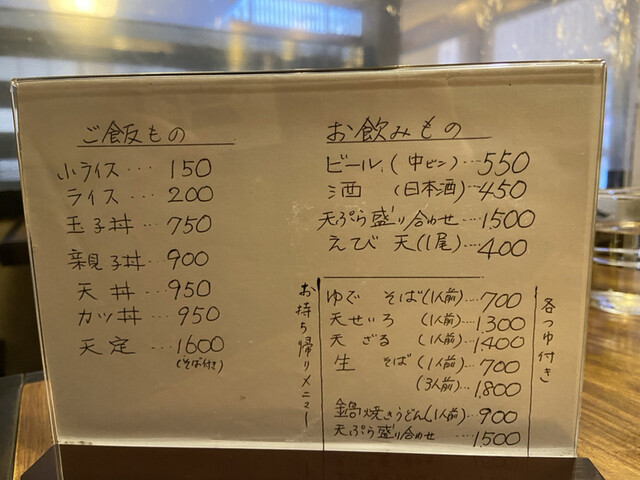 ご飯もの
小ライス... 150
ライス... 200
玉子丼... 750
親子丼... 900
天丼... 950
カツ丼... 950
天定... 1600
(そば付き)
お飲みもの
ビール,(中ビン)... 550
酒 (日本酒)... 450
天ぷら盛り合わせ... 1,500
えてび 天(1尾)... 400
お持ち帰りメニュー
ゆで そば(1人前)... 700
天せいろ (1人前)... 1,300
天ざる (1人前)... 1,400
生 そば(1人前)... 700
(3人前)... 1,800
鍋焼きうどん(1人前)... 900
天ぷら盛り合わせ .... 1,500
各つゆ付き